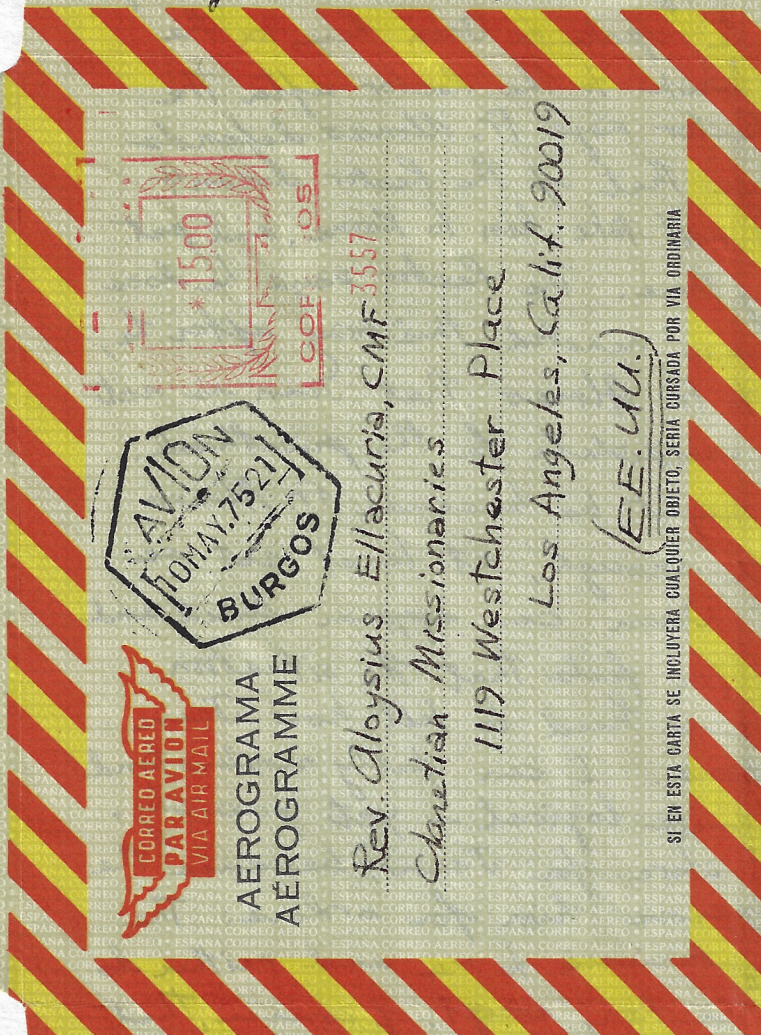 CORREO AEREO
PAR AVION
VIA AIR MAIL
AEROGRAMA
AÉROGRAMME
AVION
10MAY.7521
BURGOS
*15.00
3557
Rev. Aloysius Ellacuria, CMF
Claretian Missionaries
1119 Westchester Place
Los Angeles, Calif. 90019
(EE.UU.)
SI EN ESTA CARTA SE INCLUYERA CUALQUIER OBJETO, SERIA CURSADA POR VIA ORDINARIA
ESPAÑA CORREO AEREO